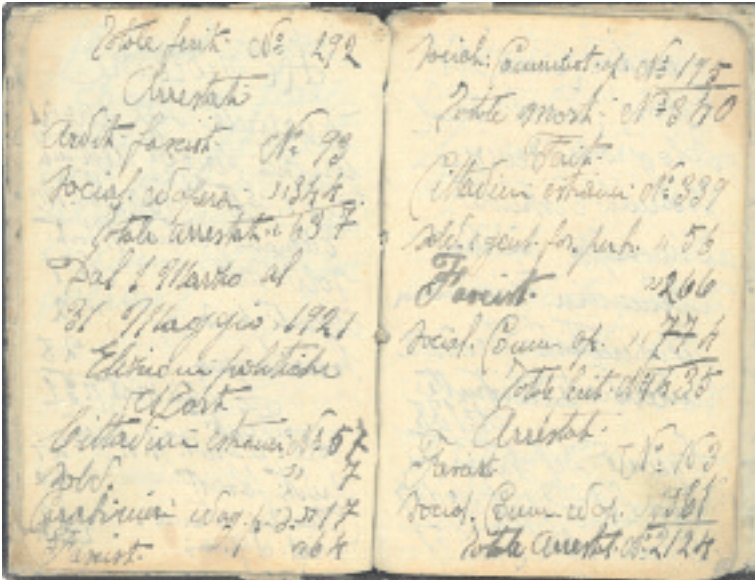 Totale ferit. N° 292
Arrestati
Ardit. fascist. N° 93
Social. ed operai " 344
Totale arrestati 437
Dal 1 Marzo al
31 Maggio 1921
Elezioni politiche
Mort.
Cittadini estranei N° 57
Sold. " 7
Carabinieri ed ag. " 17
Fascist. " 64
Social. Comunist. op. N° 195
Totale mort. N° 340
Ferit.
Cittadini estranei N° 339
Sold. agent. for. pub. " 56
Fascist. " 266
Social. Comun. op. " 774
Totale ferit. N° 1435
Arrestat.
Fascist N° 163
Social. Comun. ed op. 361
Totale arrestat. N° 2124